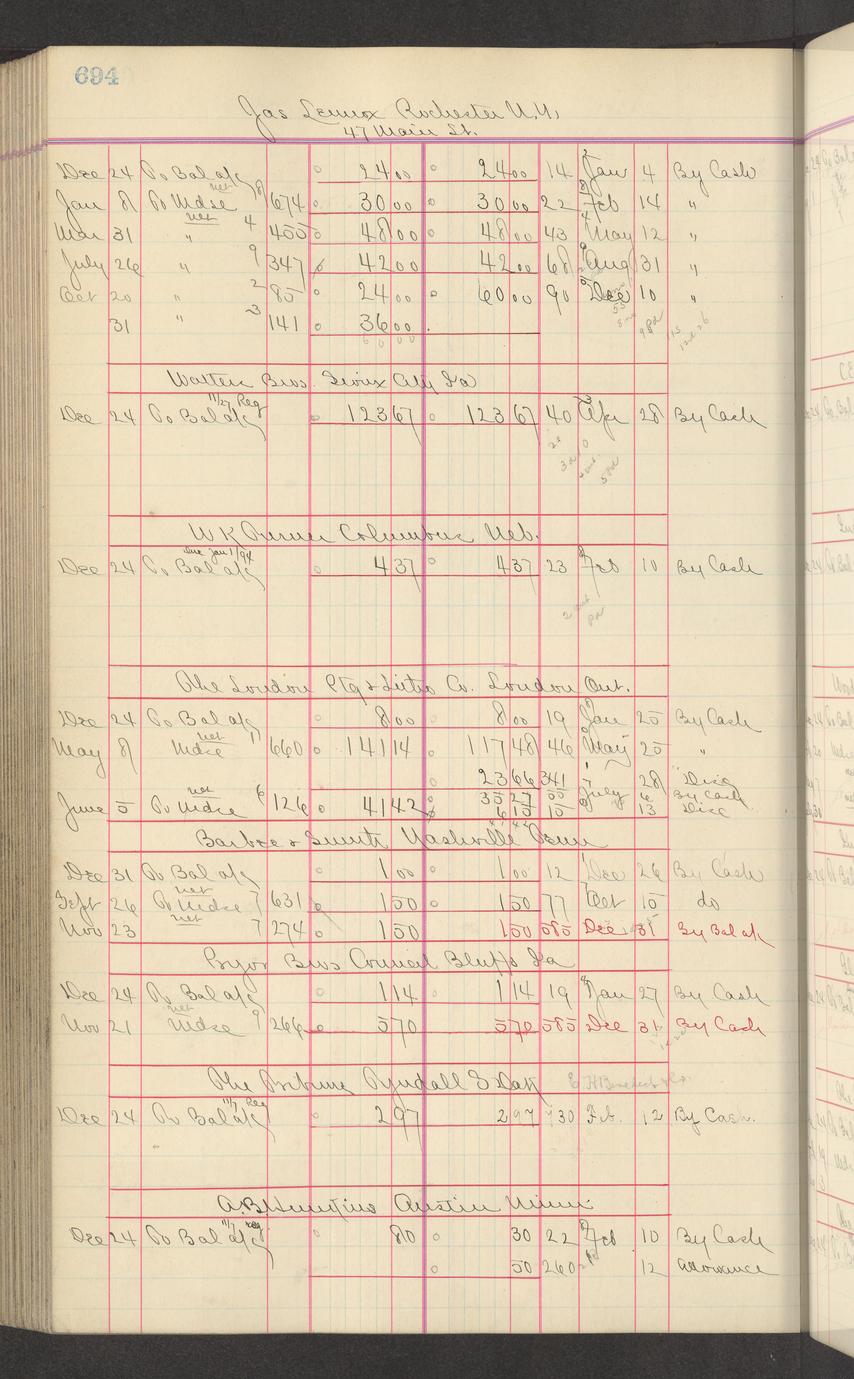 694
Jas Lennox Rochester N.Y.
47 Main St.
Dec 24 To Bal a/c 24 00 24 00 14 Jan 4 By Cash
Jan 8 To Mdse net 8 674 30 00 30 00 22 Feb 14 "
Mar 31 " net 4 455 48 00 48 00 43 May 12 "
July 26 " 9 347 42 00 42 00 68 Aug 31 "
Oct 20 " 2 85 24 00 60 00 90 Dec 10 "
31 " 3 141 36 00
60 00
Walter Bros. Sioux City Ia
11/27 Reg
Dec 24 To Bal a/c 123 67 123 67 40 Apr 28 By Cash
W K Turner Columbus Neb.
Due Jan 1/94
Dec 24 To Bal a/c 4 37 4 37 23 Feb 10 By Cash
2 pd
The London Ptg & Litho Co. London Ont.
Dec 24 To Bal a/c 8 00 8 00 19 Jan 25 By Cash
May 8 Mdse net 11 660 141 14 117 48 46 May 25 "
23 66 341 28 Disc
June 5 To Mdse net 6 126 41 42 35 27 55 July 6 By Cash
6 15 15 13 Disc
Barbee & Smith Nashville Tenn
Dec 31 To Bal a/c 1 00 1 00 12 Dec 26 By Cash
Sept 26 To Mdse net 7 631 1 50 1 50 77 Oct 15 do
Nov 23 net 7 274 1 50 1 50 585 Dec 31 By Bal a/c
Pryor Bros Council Bluffs Ia
Dec 24 To Bal a/c 1 14 1 14 19 Jan 27 By Cash
Nov 21 Mdse net 9 266 5 70 5 70 585 Dec 31 By Cash
The Tribune Tyndall S Dak E H Benedict & Co.
11/7 Reg
Dec 24 To Bal a/c 2 97 2 97 730 Feb. 12 By Cash
A.B. Austin Minn
11/7 reg
Dec 24 To Bal a/c 80 30 22 Feb 10 By Cash
50 260 12 Allowance